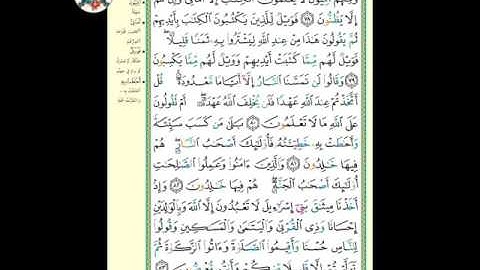 إِلَّا يَظُنُّونَ ٧٨ فَوَيْلٌ لِّلَّذِينَ يَكْتُبُونَ ٱلْكِتَٰبَ بِأَيْدِيهِمْ
ثُمَّ يَقُولُونَ هَٰذَا مِنْ عِندِ ٱللَّهِ لِيَشْتَرُوا۟ بِهِۦ ثَمَنًا قَلِيلًا ۖ
فَوَيْلٌ لَّهُم مِّمَّا كَتَبَتْ أَيْدِيهِمْ وَوَيْلٌ لَّهُم مِّمَّا يَكْسِبُونَ
٧٩ وَقَالُوا۟ لَن تَمَسَّنَا ٱلنَّارُ إِلَّآ أَيَّامًا مَّعْدُودَةً ۚ قُلْ
أَتَّخَذْتُمْ عِندَ ٱللَّهِ عَهْدًا فَلَن يُخْلِفَ ٱللَّهُ عَهْدَهُۥٓ ۖ أَمْ تَقُولُونَ
عَلَى ٱللَّهِ مَا لَا تَعْلَمُونَ ٨٠ بَلَىٰ مَن كَسَبَ سَيِّئَةً
وَأَحَٰطَتْ بِهِۦ خَطِيٓـَٔتُهُۥ فَأُو۟لَٰٓئِكَ أَصْحَٰبُ ٱلنَّارِ ۖ هُمْ
فِيهَا خَٰلِدُونَ ٨١ وَٱلَّذِينَ ءَامَنُوا۟ وَعَمِلُوا۟ ٱلصَّٰلِحَٰتِ
أُو۟لَٰٓئِكَ أَصْحَٰبُ ٱلْجَنَّةِ ۖ هُمْ فِيهَا خَٰلِدُونَ ٨٢ وَإِذْ
أَخَذْنَا مِيثَٰقَ بَنِىٓ إِسْرَٰٓءِيلَ لَا تَعْبُدُونَ إِلَّا ٱللَّهَ وَبِٱلْوَٰلِدَيْنِ
إِحْسَانًا وَذِى ٱلْقُرْبَىٰ وَٱلْيَتَٰمَىٰ وَٱلْمَسَٰكِينِ وَقُولُوا۟
لِلنَّاسِ حُسْنًا وَأَقِيمُوا۟ ٱلصَّلَوٰةَ وَءَاتُوا۟ ٱلزَّكَوٰةَ ثُمَّ
تَوَلَّيْتُمْ إِلَّا قَلِيلًا مِّنكُمْ وَأَنتُم مُّعْرِضُونَ